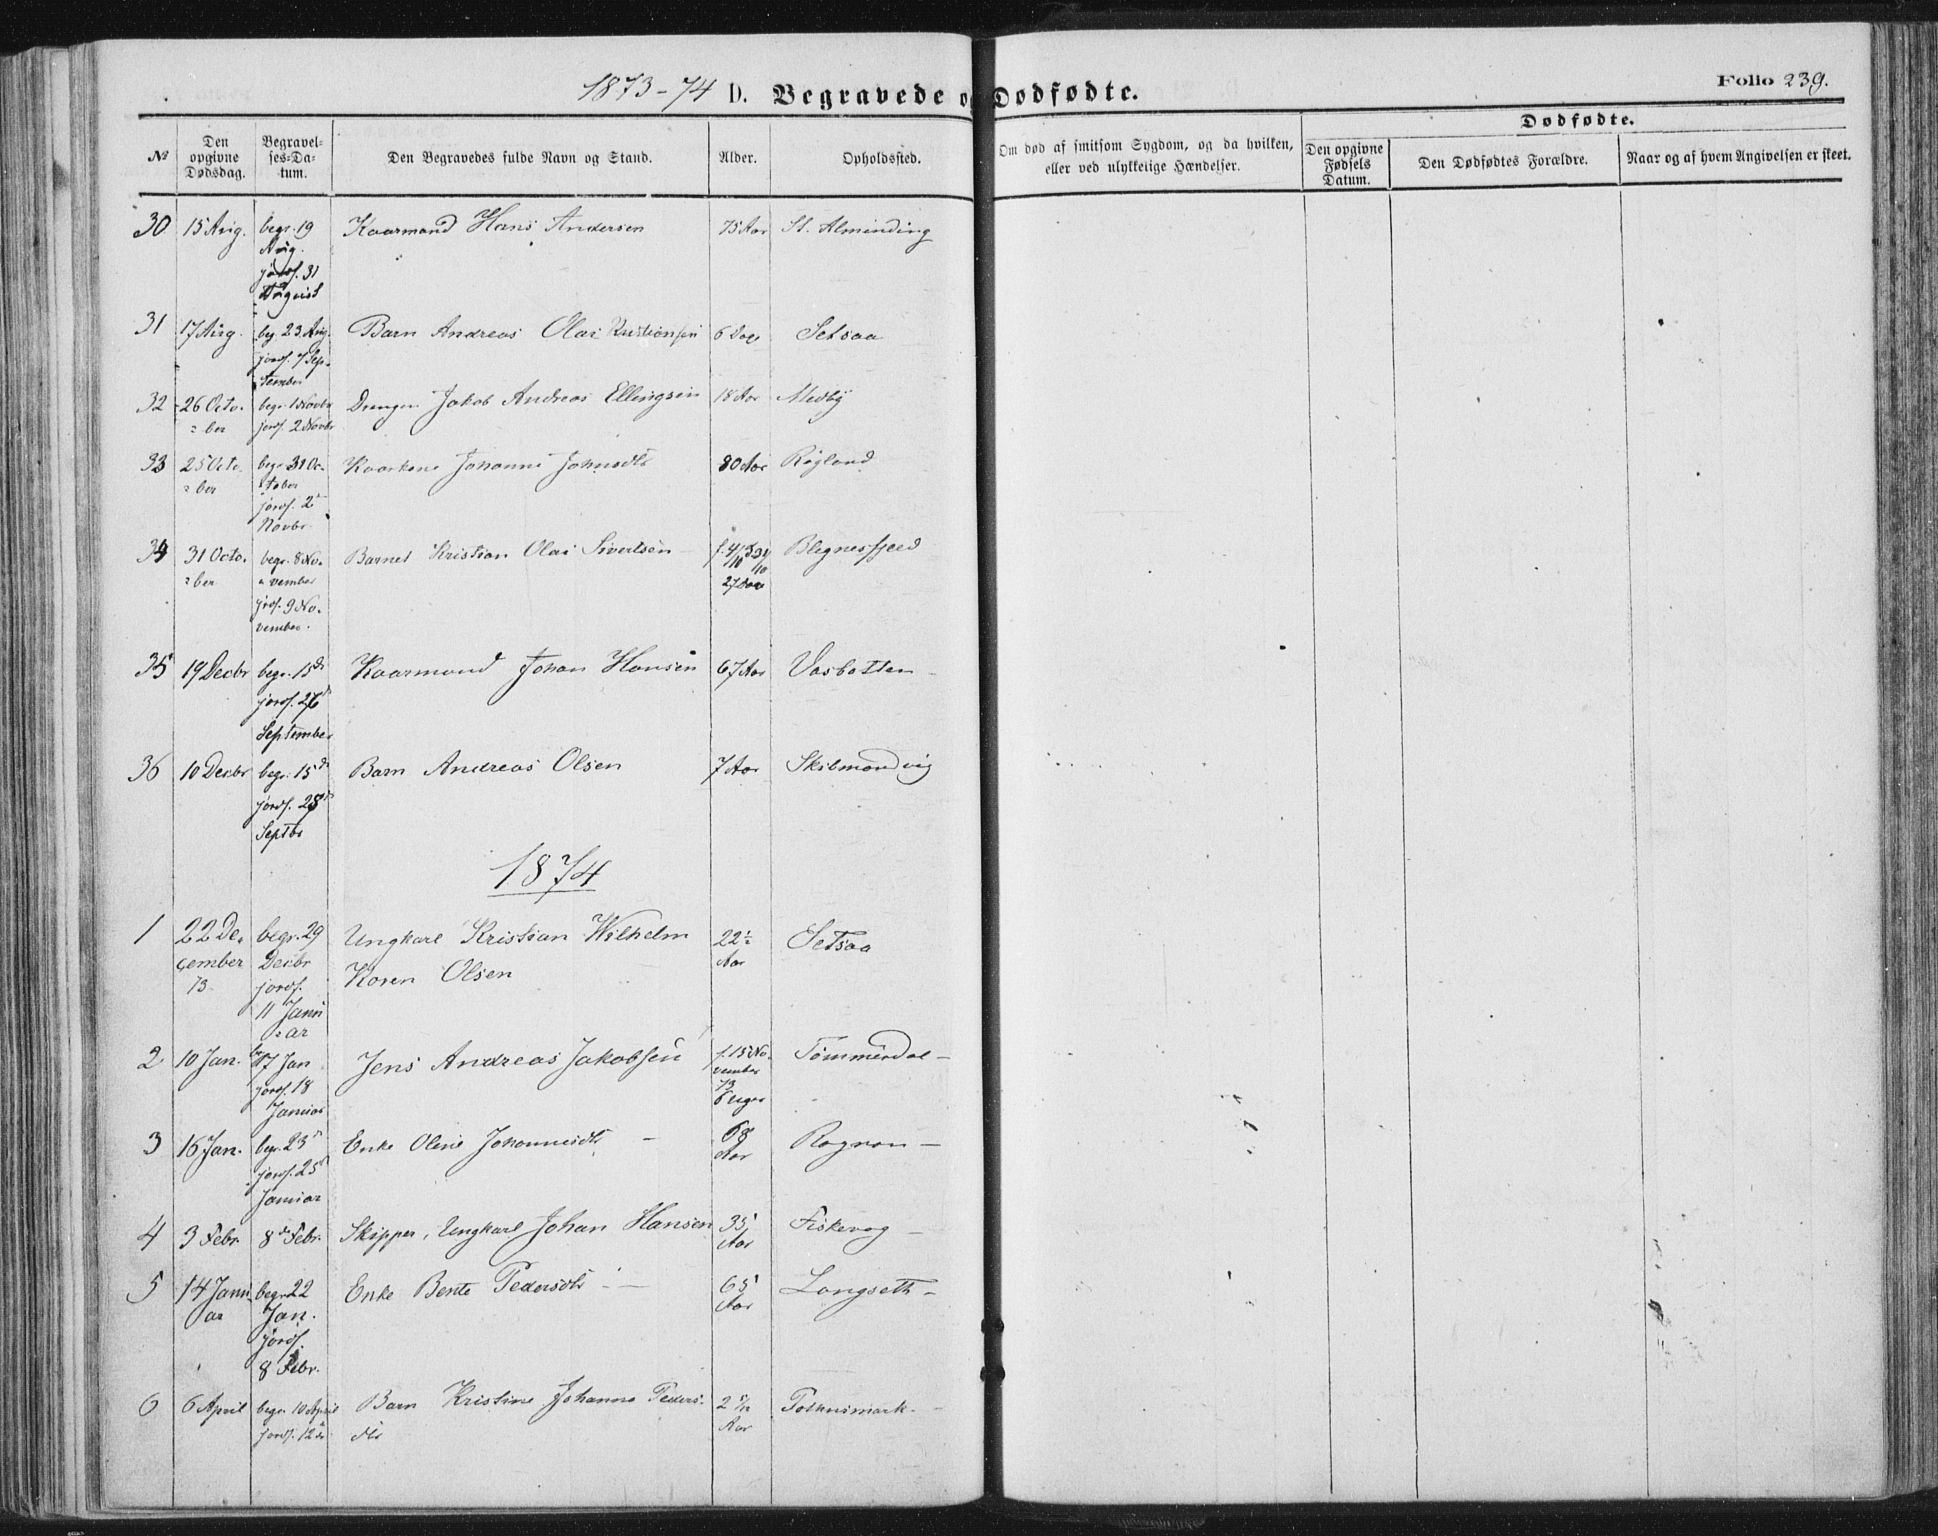 1873-74 D. Begravede og Dødfødte. Folio 239.
Dødfødte.
№ Den opgivne Dødsdag. Begravelses-Datum. Den Begravedes fulde Navn og Stand. Alder. Opholdssted. Om død af smitsom Sygdom, og da hvilken, eller ved ulykkelige Hændelser. Den opgivne Fødsels Datum. Den Dødfødtes Forældre. Naar og af hvem Angivelsen er skeet.
30 15 Aug. begr. 19 Kaarmand Hans Andersen 75 Aar St. Alminding
Aug.
jordf. 31
August
31 17 Aug. beg. 23 Aug. Barn Andreas Olai Kristiansen 6 Dage Setsaa
jordf. 7 Sep-
tember
32 26 Octo- begr. 1 Novbr Drengen Jakob Andreas Ellingsen 18 Aar Medby
=ber jordf. 2 Novbr
33 25 Octo. begr. 31 Oc- Kaarkone Johanna Johnsdtr 80 Aar Røgland
=ber tober
jordf. 2
Novbr.
34 31 Octo. begr. 8 No- Barnet Kristian Olai Sivertsen f. 4/10 31/10
=ber vember 27 Dage
jordf. 9 No-
vember.
35 19 Decbr begr. 15de Kaarmand Johan Hansen 67 Aar Vasbotten
jordf. 26
September
36 10 Decbr begr. 15de Barn Andreas Olsen 7 Aar Skibmandvig
jordf. 28
Septbr
1874
1 22 De- begr. 29 Ungkarl Kristian Wilhelm 22½ Setsaa
cember Decbr Koren Olsen Aar
73 jordf.
11 Janu
=ar
2 10 Jan. 17 Jan Jens Andreas Jakobsen f. 15 No- Tømmerdal
jordf. 18 vember
Januar 73
8 Uger
3 16 Jan. begr. 23 Enke Oline Johannesdtr 68 Rognan
jordf. 25 Aar
Januar
4 3 Febr. 8de Febr. Skipper, Ungkarl Johan Hansen 35 Fiskevag
Aar
5 14 Janu begr 22 Enke Bente Pedersdtr 65 Langseth
ar Jan. Aar
jordf.
8 Febr.
6 6 April begr. 10 April Barn Kristine Johanna Peders- 2 Aar
jordf. 12de dtr